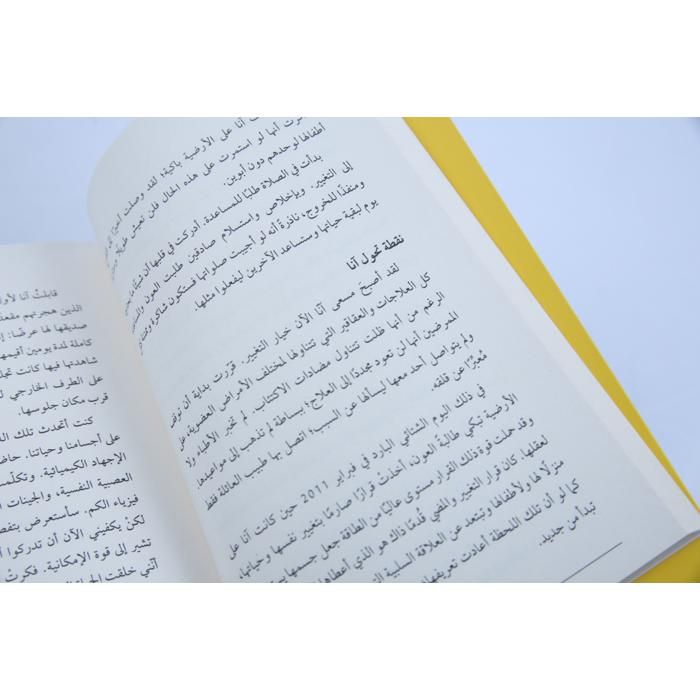 أنا على الأرضية باكية؛ لقد وصلت أخيرًا
أنها لو استمرت على هذه الحال فلن تعيش طويلًا
أطفالها لوحدهم دون أبوين.
بدأت في الصلاة طلبًا للمساعدة. أدركت في قلبها أن
إلى التغيير. وبإخلاص واستسلام صادقين طلبت العون
ومنفذًا للخروج، ناذرةً أنه لو أجيبت صلواتها فستكون شاكرة
يوم لبقية حياتها وستساعد الآخرين ليفعلوا مثلها.
نقطة تحول أنا
لقد أصبح مسعى أنّا الآن خيار التغيير. قررت بداية أن توقف
كل العلاجات والعقاقير التي تتناولها لمختلف الأمراض العضوية، على
الرغم من أنها ظلت تتناول مضادات الاكتئاب. لم تخبر الأطباء ولا
الممرضين أنها لن تعود مجددًا إلى العلاج؛ ببساطة لم تذهب إلى مواعيدها
ولم يتواصل أحد معها ليسألها عن السبب؛ اتصل بها طبيب العائلة فقط
مُعبِّرًا عن قلقه.
في ذلك اليوم الشتائي البارد في فبراير 2011 حين كانت أنا على
الأرضية تبكي طالبةً العون، أخذتْ قرارًا صارمًا بتغيير نفسها وحياتها،
وقد حملت قوة ذلك القرار مستوى عاليًا من الطاقة جعل جسمها
لعقلها. كان قرار التغيير والمضي قُدمًا ذاك هو الذي أعطاها
منزلًا لها ولأطفالها وتبتعد عن العلاقة السلبية التي
كما لو أن تلك اللحظة أعادت تعريفها
تبدأ من جديد.
قابلتُ أنا لأول
الذين هجرتهم
صديقها لها عرضًا:
كاملة لمدة يومين أقيمها
شاهدتها فيها كانت
على الطرف الخارجي
قرب مكان جلوسها.
كنت أتحدث تلك
على أجسامنا وحياتنا.
الإجهاد الكيميائية.
العصبية النفسية، والجينات
فيزياء الكم. سأستعرض
لكنْ يكفيني الآن أن تدركوا
تشير إلى قوة الإمكانية. فكرتُ
أنّني خلقت